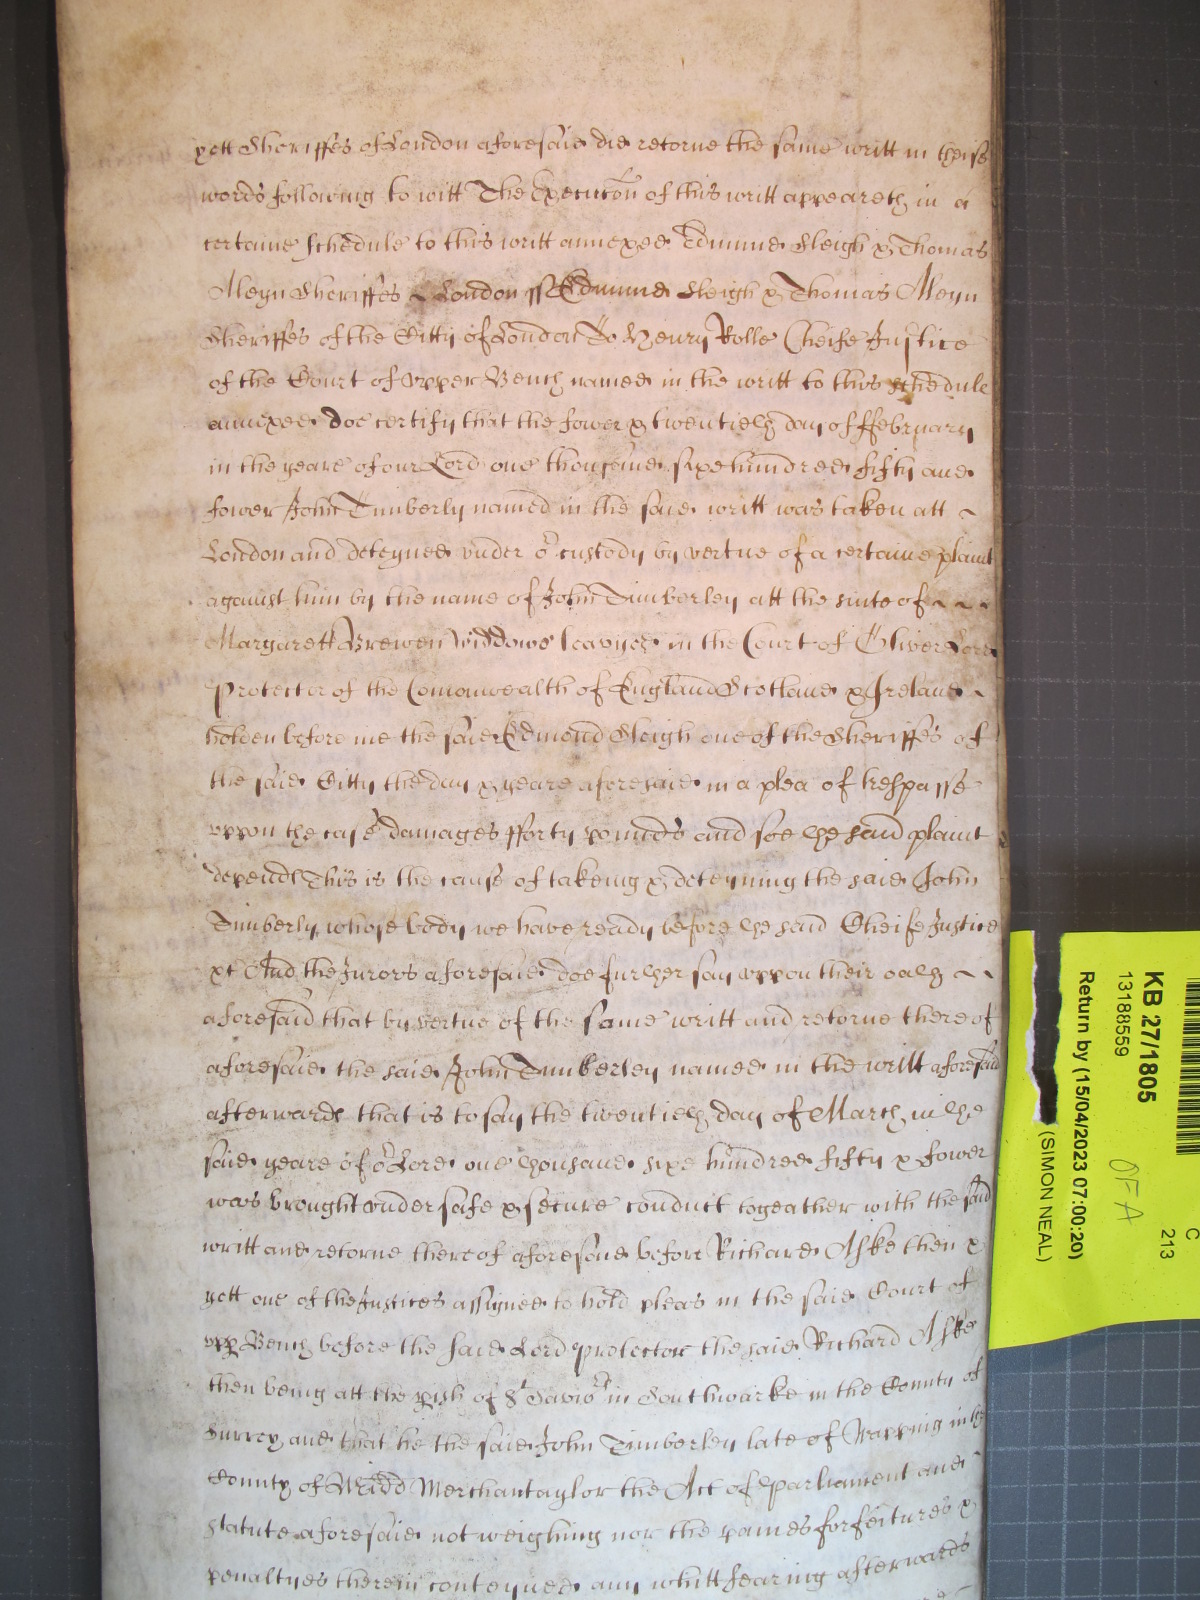 yett Sheriffes of London aforesaid did retorne the same writt in theis
words following to witt The Execucõn of this writt appeareth in a
certaine schedule to this writt annexed Edmund Sleigh & Thomas
Aleyn Sheriffes ~ London ss Edmund Sleigh & Thomas Aleyn
Sheriffes of the Citty of London To Henry Rolle Cheife Justice
of the Court of Upper Bench named in the writt to this schedule
annexed doe certify that the fower & twentieth day of ffebruary
in the yeare of our Lord one thousand sixe hundred fifty and
fower John Timberly named in the said writt was taken att ~
London and deteyned under or custody by vertue of a certaine plaint
against him by the name of John Timberley att the suite of ~ ~ ~
Margarett Brewen widdowe leavyed in the Court of Oliver Lord
Protector of the Comonwealth of England Scotland & Ireland ~
holden before me the said Edmond Sleigh one of the Sheriffes of
the said Citty the day & yeare aforesaid in a plea of trespasse
uppon the case damages fforty pounds and soe the said plaint
depends This is the cause of takeing & deteyning the said John
Timberly whose body we have ready before the said Cheife Justice
&c And the Jurors aforesaid doe further say uppon their oath ~ ~
aforesaid that by vertue of the same writt and retorne thereof
aforesaid the said John Timberley named in the writt aforesaid
afterwards that is to say the twentieth day of March in the
said yeare of or Lord one thousand sixe hundred fifty & fower
was brought under safe & secure conduct togeather with the said
writt and retorne thereof aforesaid before Richard Aske then &
yett one of the Justices assigned to hold pleas in the said Court of
upp Bench before the said Lord protector the said Richard Aske
then being att the pish of St Savior in Southwarke in the County of
Surrey and that he the said John Timberley late of Wapping in the
County of Midd Merchantaylor the Act of parliament and
statute aforesaid not weighing nor the paines forfeitures &
penaltyes therein conteyned any whitt fearing afterwards
KB 27/1805
13188559
Return by (15/04/2023 07:00:20)
(SIMON NEAL)
OFA
C
213